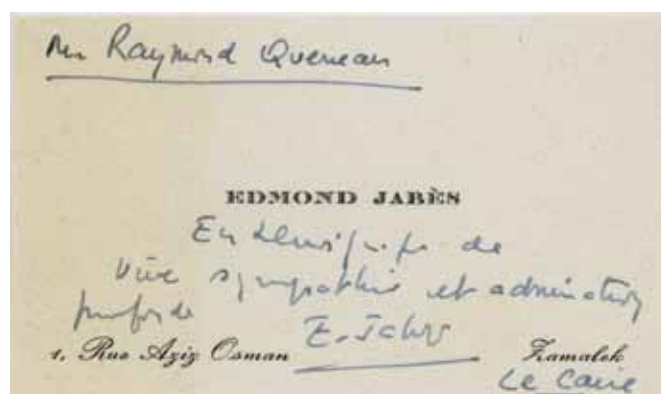 Mr Raymond Queneau
EDMOND JABÈS
En témoignage de
vive sympathie et admiration
profonde
E. Jabès
1, Rue Aziz Osman Zamalek
Le Caire